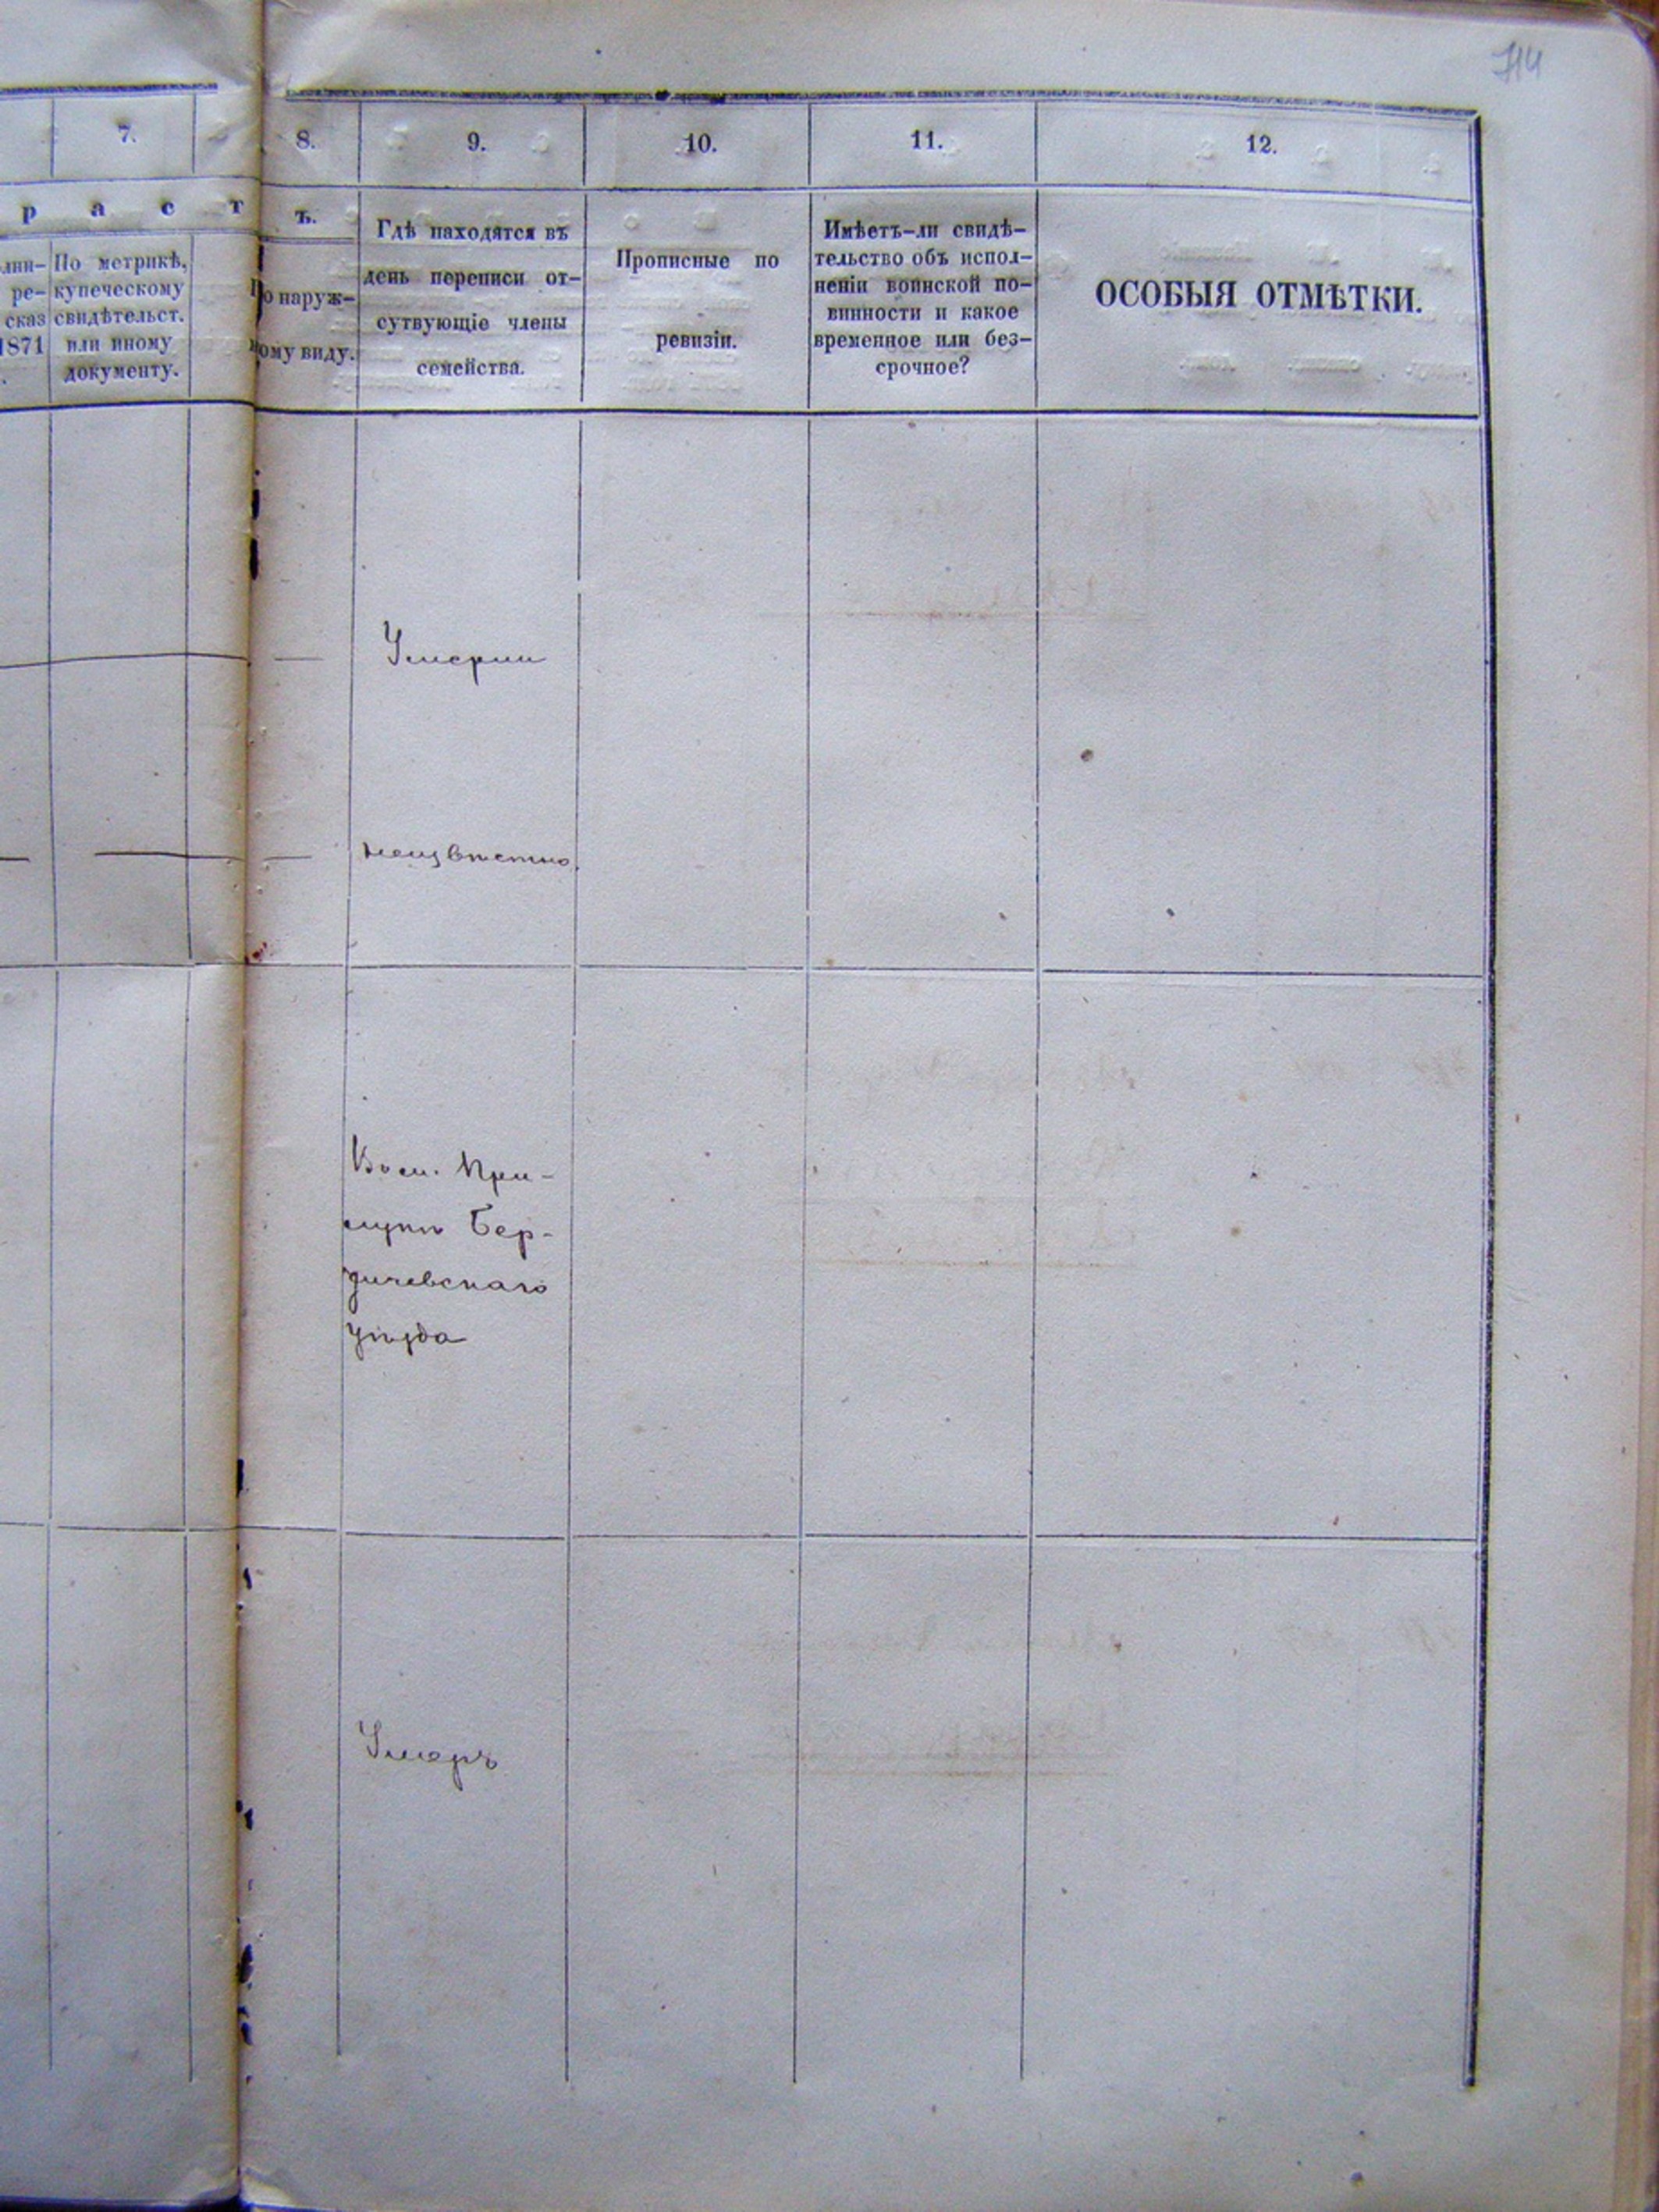 714
7.
8.
9.
10.
11.
12.
р а с т
ъ.
лни-
ре-
сказ
1871
По метрикѣ,
купеческому
свидѣтельст.
или иному
документу.
По наруж-
ному виду.
Гдѣ находятся въ
день переписи от-
сутвующіе члены
семейства.
Прописные по
ревизіи.
Имѣетъ-ли свидѣ-
тельство объ испол-
неніи воинской по-
винности и какое
временное или без-
срочное?
ОСОБЫЯ ОТМѢТКИ.
Умерли
неизвѣстно
При-
лукѣ Бер-
дичевскаго
уѣзда
Умеръ